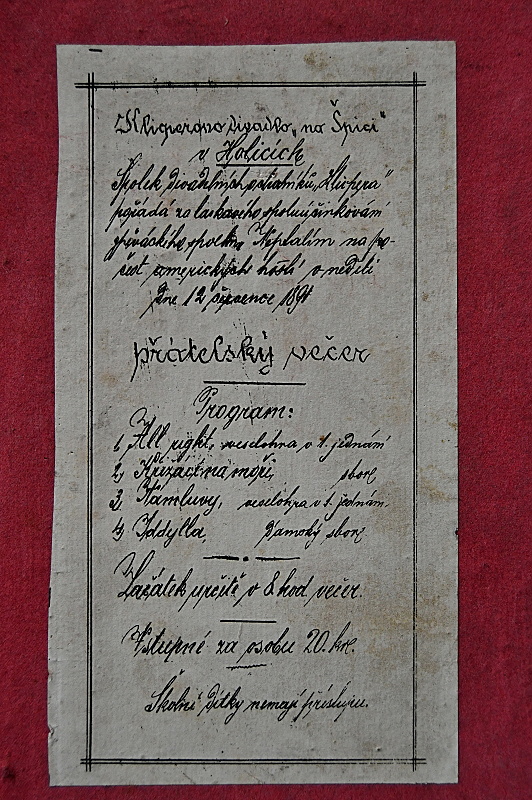 Klicperovo Divadlo „na Špici“
v Holicích
Spolek divadelních ochotníků „Klicpera“
pořádá za laskavého spoluúčinkování
pěváckého spolku Neptalím na po-
čest amerických hostí v neděli
dne 12 července 1891
přátelský večer
Program:
1, All right, veselohra o 1. jednání
2, Křižáci na moři, sbor
3, Námluvy, veselohra o 1. jednám.
4, Iddylla, Dámský sbor
Začátek určitě o 8 hod večer.
Vstupné za osobu 20. kr.
Školní dítky nemají přístupu.